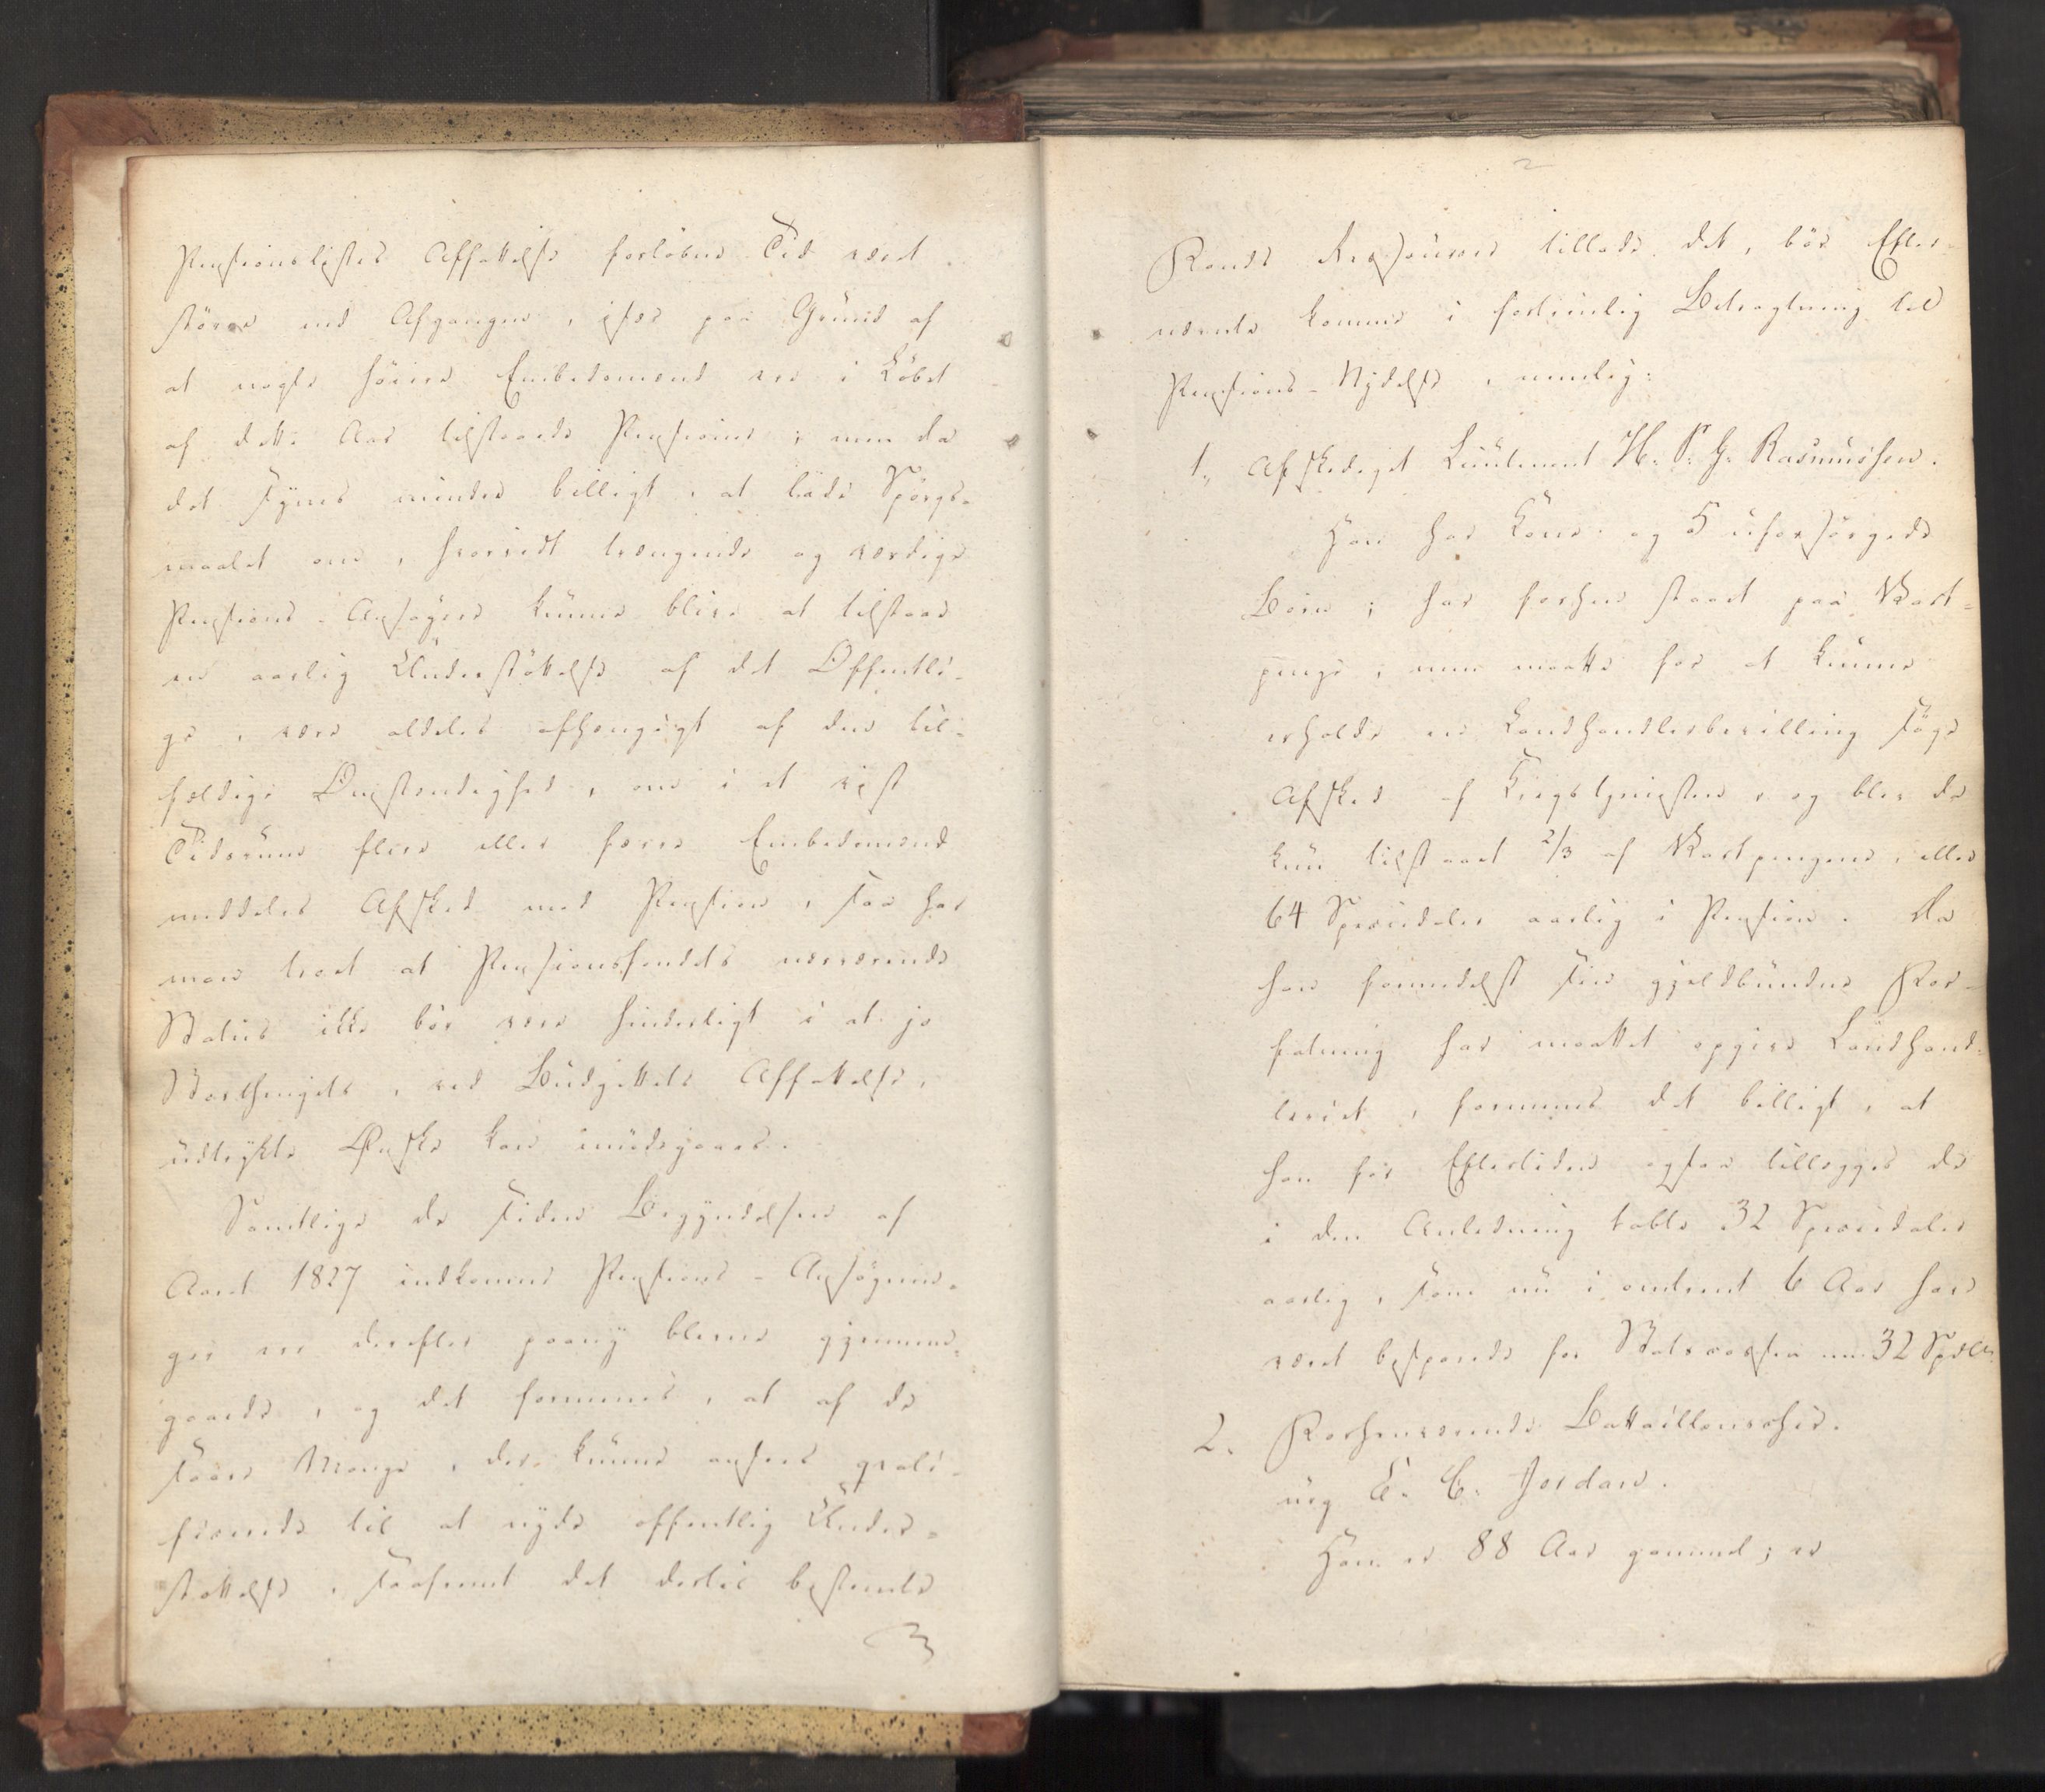 Pensionslistes Affattelse forløbne Tid været
større end Afgangen, især paa Grund af
at nogle høiere Embedsmænd ere i Løbet
af dette Aar tilstaaede Pensioner; men da
det synes mindre billigt, at lade Spørgs-
maalet om, hvorvidt trængende og værdige
Pensions-Ansøgere kunne blive at tilstaae
en aarlig Understøttelse af det Offentli-
ge, være aldeles afhængigt af den til-
fældige Omstændighed, om i et vist
Tidsrum flere eller færre Embedsmænd
meddeles Afsked med Pension, saa har
man troet at Pensionsfondets nærværende
Status ikke bør være hinderligt i at jo
Storthingets, ved Budgettets Affattelse,
udtrykte Ønske kan imødegaaes.
Samtlige de siden Begyndelsen af
Aaret 1827 indkomne Pensions-Ansøgnin-
ger ere derefter paany blevne gjennem-
gaaede, og det formenes, at af de
saare Mange, der kunne ansees qvali-
ficerede til at nyde offentlig Under-
støttelse, saafremt det dertil bestemte
2
Fonds Ressourcer tillode det, bør Efter-
nævnte komme i fortrinlig Betragtning til
Pensions-Nydelse, nemlig:
1., Afskediget Lieutenant H. P. G. Rasmussen.
Han har Kone og 5 uforsørgede
Børn; har forhen staaet paa Vart-
penge, men maatte for at kunne
erholde en Landhandlerbevilling søge
Afsked af Krigstjenesten, og blev da
kun tilstaaet 2/3 af Vartpengene, eller
64 Speciedaler aarlig i Pension. Da
han formedelst sin gjeldbundne For-
fatning har maattet opgive Landhand-
leriet, formenes det billigt, at
han for Eftertiden ogsaa tillægges de
i den Anledning tabte 32 Speciedaler
aarlig, som nu i omtrent 6 Aar have
været besparede for Statscassen 32 Spdlr
2. Forhenværende Bataillonschir-
urg E. C. Jordan.
Han er 88 Aar gammel; er